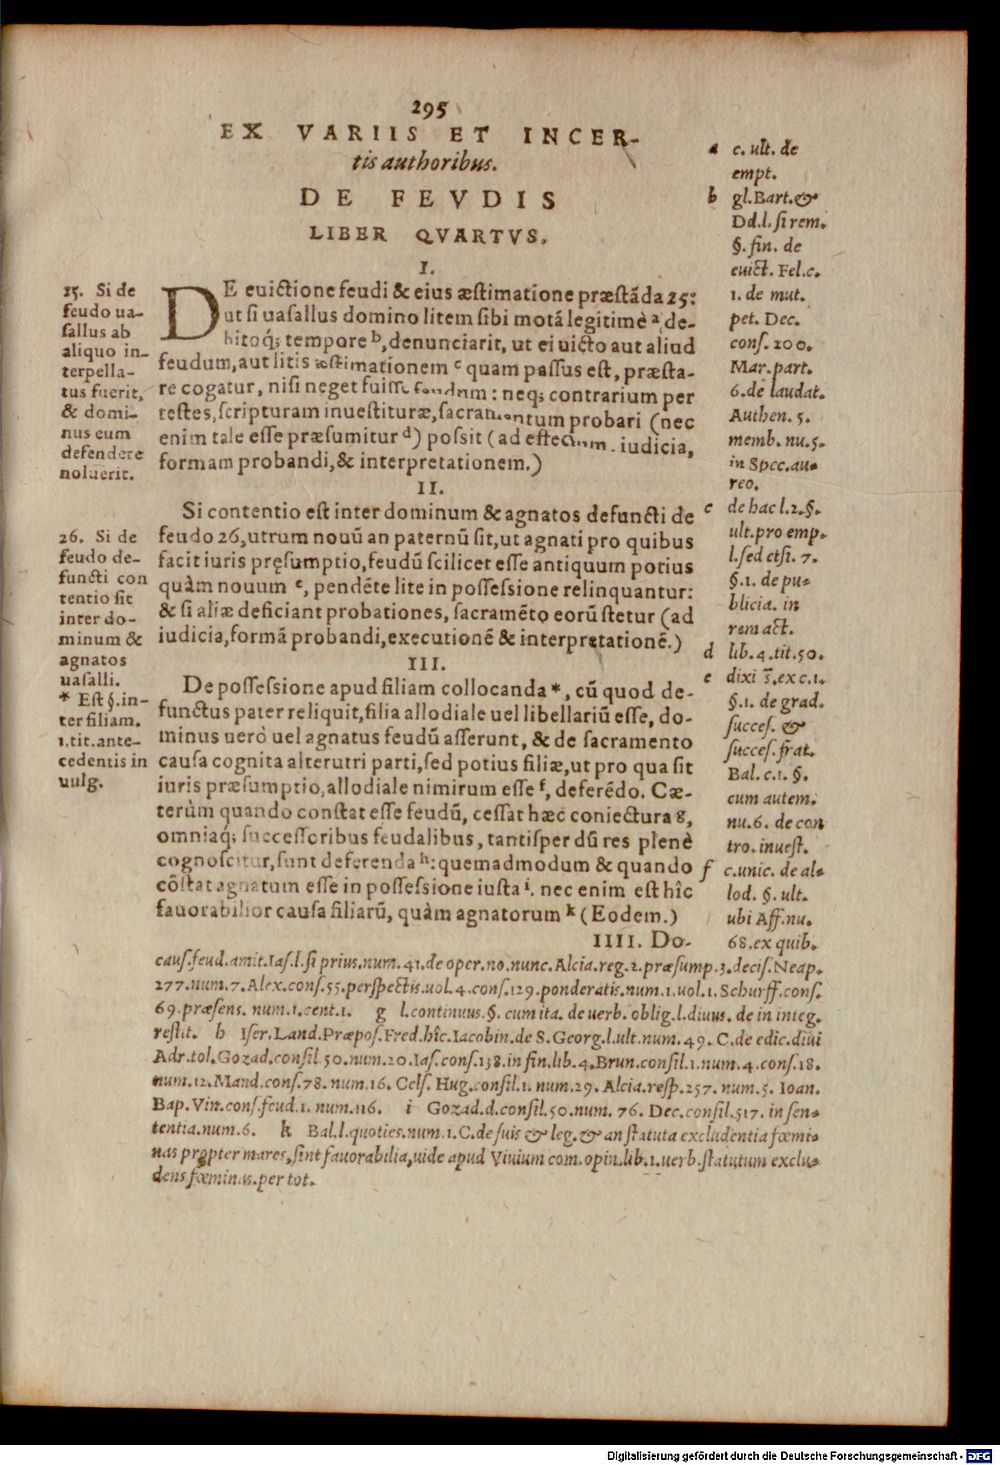 295
EX VARIIS ET INCER-
tis authoribus.
DE FEVDIS
LIBER QVARTVS.
I.
DE euictione feudi & eius æstimatione præstãda 25:
ut si uasallus domino litem sibi motã legitimè ᵃ de-
bitoq́; tempore ᵇ, denunciarit, ut ei uicto aut aliud
feudum, aut litis æstimationem ᶜ quam passus est, præsta-
re cogatur, nisi neget fuisse feudum: neq; contrarium per
testes, scripturam inuestituræ, sacramentum probari (nec
enim tale esse præsumitur ᵈ) possit (ad eſtectum. iudicia,
formam probandi, & interpretationem.)
II.
Si contentio est inter dominum & agnatos defuncti de
feudo 26, utrum nouũ an paternũ sit, ut agnati pro quibus
facit iuris pręsumptio, feudũ scilicet esse antiquum potius
quàm nouum ᵉ, pendẽte lite in possessione relinquantur:
& si aliæ deficiant probationes, sacramẽto eorũ stetur (ad
iudicia, formã probandi, executionẽ & interpretationẽ.)
III.
De possessione apud filiam collocanda *, cũ quod de-
functus pater reliquit, filia allodiale uel libellariũ esse, do-
minus uerò uel agnatus feudũ asserunt, & de sacramento
causa cognita alterutri parti, sed potius filiæ, ut pro qua sit
iuris præsumptio, allodiale nimirum esse ᶠ, deferẽdo. Cæ-
terùm quando constat esse feudũ, cessat hæc coniectura g,
omniaq́; successoribus feudalibus, tantisper dũ res plenè
cognoscitur, sunt deferenda ʰ: quemadmodum & quando
cõstat agnatum esse in possessione iusta ⁱ. nec enim est hîc
fauorabilior causa filiarũ, quàm agnatorum ᵏ (Eodem.)
IIII. Do-
25. Si de
feudo ua-
sallus ab
aliquo in-
terpella-
tus fuerit,
& domi-
nus eum
defendere
noluerit.
26. Si de
feudo de-
functi con
tentio sit
inter do-
minum &
agnatos
uasalli.
* Est §. in-
ter filiam.
1. tit. ante-
cedentis in
uulg.
a c. ult. de
empt.
b gl. Bart. &
Dd. l. si rem.
§. fin. de
euict. Fel. c.
1. de mut.
pet. Dec.
cons. 200.
Mar. part.
6. de laudat.
Authen. 5.
memb. nu. 5.
in Spec. au-
reo.
c de hac l. 2. §.
ult. pro emp.
l. sed etsi. 7.
§. 1. de pu-
blicia. in
rem act.
d lib. 4. tit. 50.
e dixi s̃. ex c. 1.
§. 1. de grad.
succes. &
succes. frat.
Bal. c. 1. §.
cum autem.
nu. 6. de con
tro. inuest.
f c. unic. de al-
lod. §. ult.
ubi Aff. nu.
68. ex quib.
caus. feud. amit. Ias. l. si prius. num. 41. de oper. no. nunc. Alcia. reg. 2. præsump. 3. decis. Neap.
277. num. 7. Alex. cons. 55. perspectis. uol. 4. cons. 129. ponderatis. num. 1. uol. 1. Schurff. cons.
69. præsens. num. 1. cent. 1. g l. continuus. §. cum ita. de uerb. oblig. l. diuus. de in integ.
restit. h Iser. Land. Præpos. Fred. hîc. Iacobin. de S. Georg. l. ult. num. 49. C. de edic. diui
Adr. tol. Gozad. consil 50. num. 20. Ias. cons. 138. in fin. lib. 4. Brun. consil. 1. num. 4. cons. 18.
num. 12. Mand. cons. 78. num. 16. Cels. Hug. consil. 1. num. 29. Alcia. resp. 257. num. 5. Ioan.
Bap. Vin. cons. feud. 1. num. 116. i Gozad. d. consil. 50. num. 76. Dec. consil. 517. in sen-
tentia. num. 6. k Bal. l. quoties. num. 1. C. de suis & leg. & an statuta excludentia fœmi-
nas propter mares, sint fauorabilia, uide apud Viuium com. opin. lib. 1. uerb. statutum exclu-
dens fœminas. per tot.
Digitalisierung gefördert durch die Deutsche Forschungsgemeinschaft - DFG